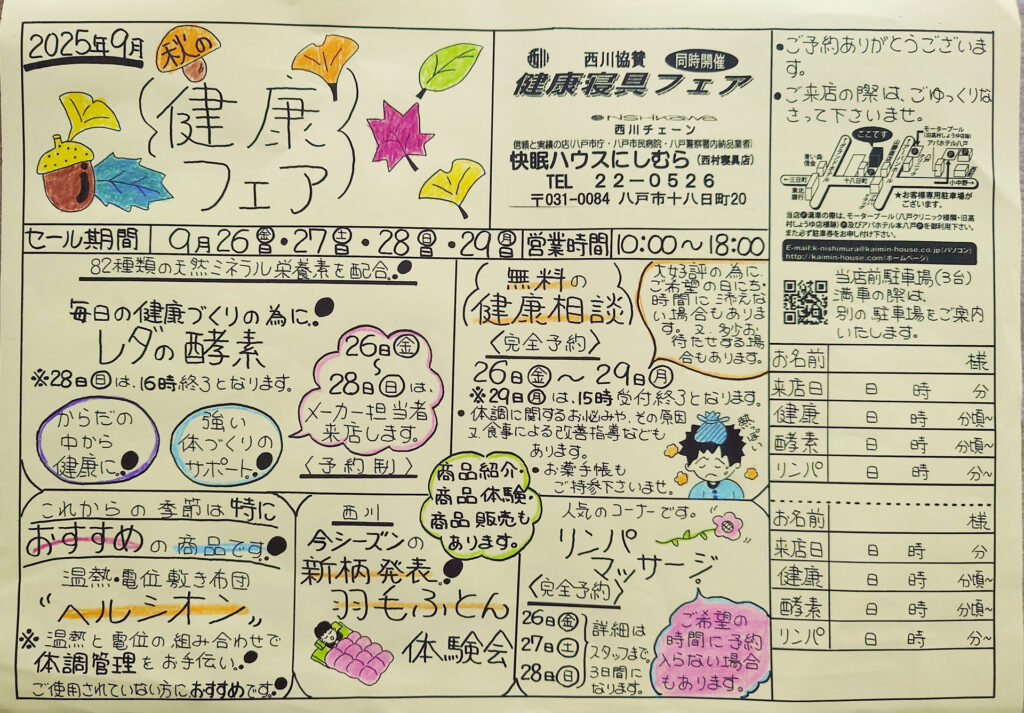 2025年9月
秋の
健康
フェア
西川
西川協賛
同時開催
健康寝具フェア
NISHIKAWA
西川チェーン
信頼と実績の店(八戸市庁・八戸市民病院・八戸警察署内納品業者)
快眠ハウスにしむら(西村寝具店)
TEL 22-0526
〒031-0084 八戸市十八日町20
・ご予約ありがとうございま
す。
・ご来店の際は、ごゆっくりな
さって下さいませ。
ここです
モータープール
(旧高村しょうゆ店跡)
アパホテル八戸
青い森
信金
←三日町
十八日町
小中野→
東北
銀行
★お客様専用駐車場が
ございます。
当店P満車の際は、モータープール(八戸クリニック様隣・旧高
村しょうゆ店様跡)P及びアパホテル本八戸Pを御利用下さい。
また必ず駐車券をお申し付け下さい。
E-mail:k-nishimura@kaimin-house.co.jp(パソコン)
http://kaimin-house.com(ホームページ)
当店前駐車場(3台)
満車の際は、
別の駐車場をご案内
いたします。
セール期間
9月26金・27土・28日・29月
営業時間
10:00〜18:00
82種類の天然ミネラル栄養素を配合
毎日の健康づくりの為に
レダの酵素
※28日日は、16時終了となります。
からだの
中から
健康に
強い
体づくりの
サポート
26日金
〜
28日日は、
メーカー担当者
来店します。
〈予約制〉
無料の
健康相談
〈完全予約〉
大好評の為に、
ご希望の日にち・
時間に添えな
い場合もありま
す。又、多少お
待たせする場
合もあります。
26日金〜29日月
※29日月は、15時受付終了となります。
・体調に関するお悩みや、その原因
又食事による改善指導なども
あります。
・お薬手帳も
ご持参下さいませ。
これからの季節は特に
おすすめの商品です
温熱・電位敷き布団
"ヘルシオン"
※温熱と電位の組み合わせで
体調管理をお手伝い
ご使用されていない方におすすめです
西川
今シーズンの
新柄発表
羽毛ふとん
体験会
商品紹介・
商品体験・
商品販売も
あります。
人気のコーナーです。
リンパ
マッサージ
〈完全予約〉
26日金
27日土
28日日
詳細は
スタッフまで
3日間に
なります。
ご希望の
時間に予約
入らない場合
もあります。
お名前 様
来店日 日 時 分
健康 日 時 分頃~
酵素 日 時 分頃~
リンパ 日 時 分~
お名前 様
来店日 日 時 分
健康 日 時 分頃~
酵素 日 時 分頃~
リンパ 日 時 分~